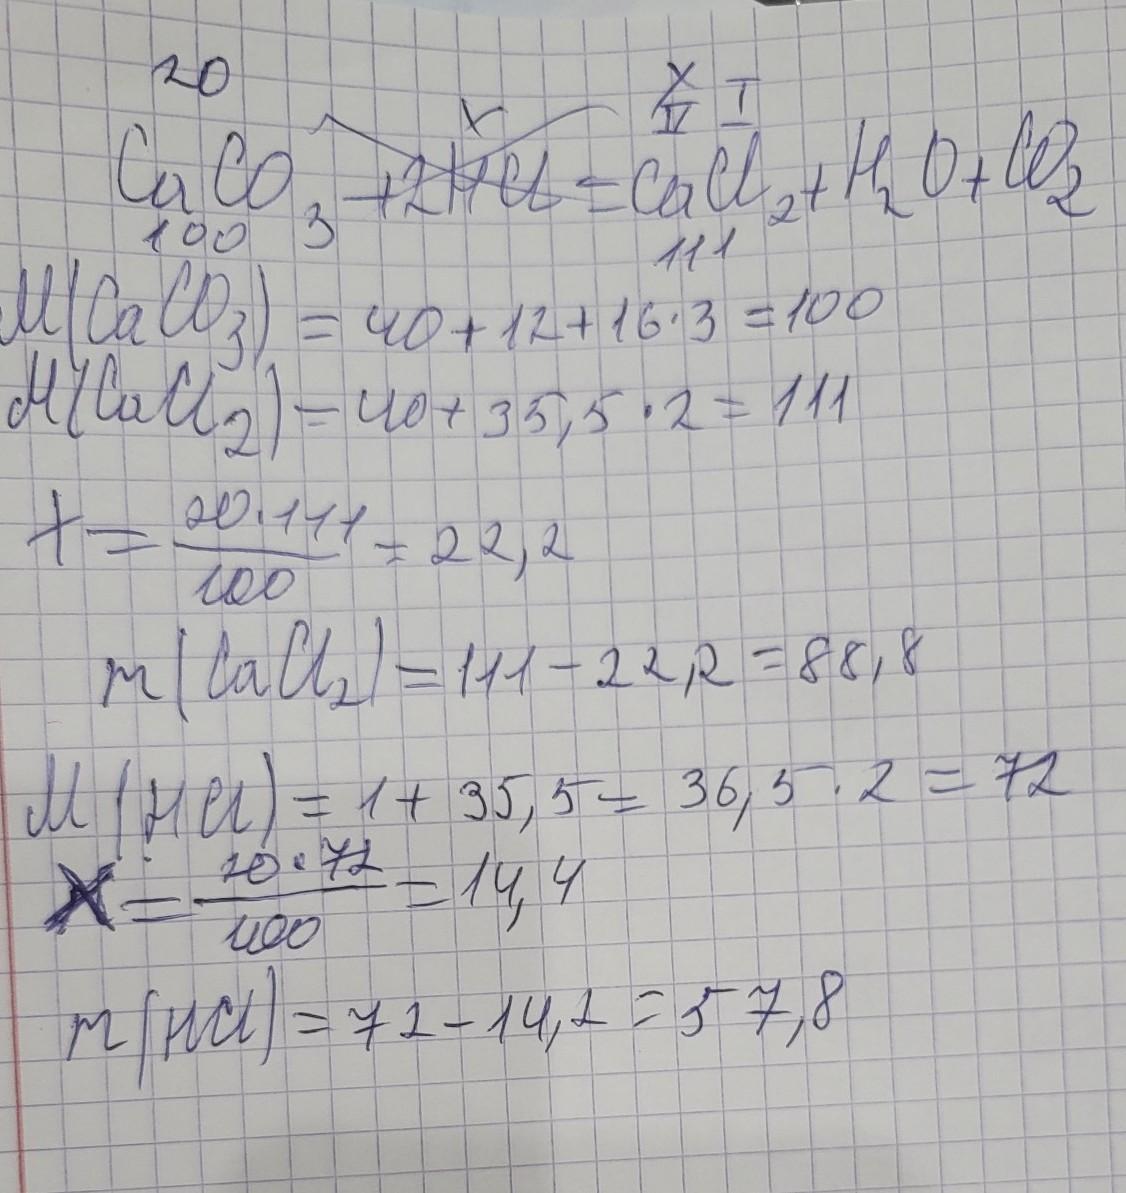 20 x x
IV I
CaCO3 + 2HCl = CaCl2 + H2O + CO2
100 111
M(CaCO3) = 40 + 12 + 16 · 3 = 100
M(CaCl2) = 40 + 35,5 · 2 = 111
x = 20 · 111 / 100 = 22,2
m(CaCl2) = 111 - 22,2 = 88,8
M(HCl) = 1 + 35,5 = 36,5 · 2 = 72
x = 20 · 72 / 100 = 14,4
m(HCl) = 72 - 14,2 = 57,8